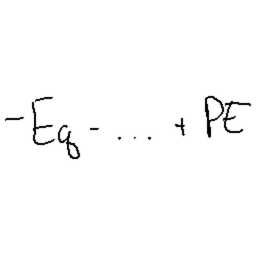 - Eq - ... + PE